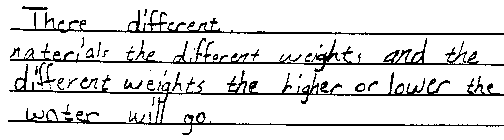 There different
naterials the different weights and the
different weights the higher or lower the
water will go.